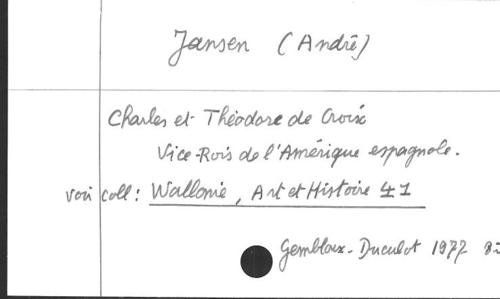 Jansen (André)
Charles et Théodore de Croix
Vice-Rois de l'Amérique espagnole.
voir coll: Wallonie, Art et Histoire 41
Gembloux-Duculot 1977